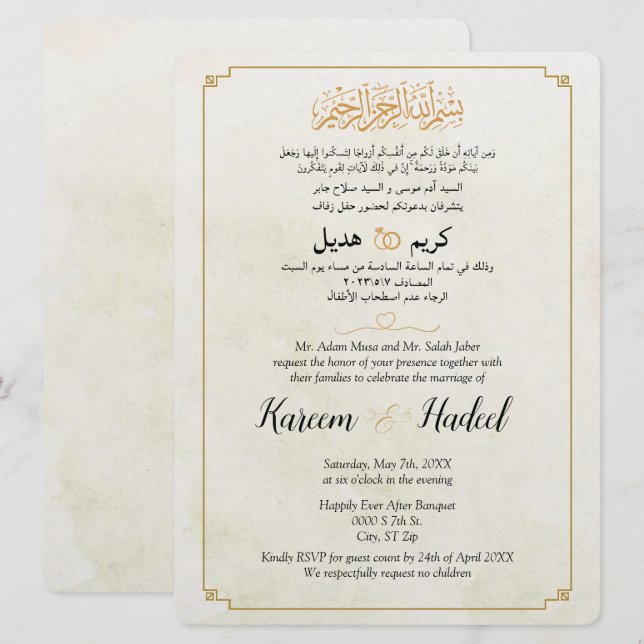 بسم الله الرحمن الرحيم
وَمِن آيَاتِهِ أَن خَلَقَ لَكُم مِن أَنفُسِكُم أَزوَاجًا لِتَسكُنوا إِلَيها وَجَعَلَ
بَينَكُم مَوَدَّةً وَرَحمَةً ۚ إِنَّ في ذَلِكَ لَآيَاتٍ لِقَومٍ يَتَفَكَّرُونَ
السيد آدم موسى و السيد صلاح جابر
يتشرفان بدعوتكم لحضور حفل زفاف
كريم هديل
وذلك في تمام الساعة السادسة من مساء يوم السبت
المصادف ٢٠٢٣\٥\٧
الرجاء عدم اصطحاب الأطفال
Mr. Adam Musa and Mr. Salah Jaber
request the honor of your presence together with
their families to celebrate the marriage of
Kareem & Hadeel
Saturday, May 7th, 20XX
at six o'clock in the evening
Happily Ever After Banquet
0000 S 7th St.
City, ST Zip
Kindly RSVP for guest count by 24th of April 20XX
We respectfully request no children